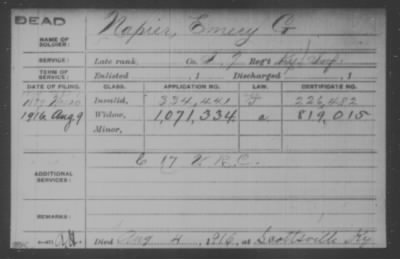 DEAD
NAME OF SOLDIER: Napier, Emery G
SERVICE: Late rank, Co. Reg't Ky Inf
TERM OF SERVICE: Enlisted , 1 Discharged , 1
DATE OF FILING. CLASS. APPLICATION NO. LAW. CERTIFICATE NO.
Invalid, 334,441 226,482
1916 Aug 9 Widow, 1,071,334 a. 819,015
Minor,
ADDITIONAL SERVICES: C 17 V.R.C.
REMARKS:
Died Aug 4, 1916, at Scottsville Ky